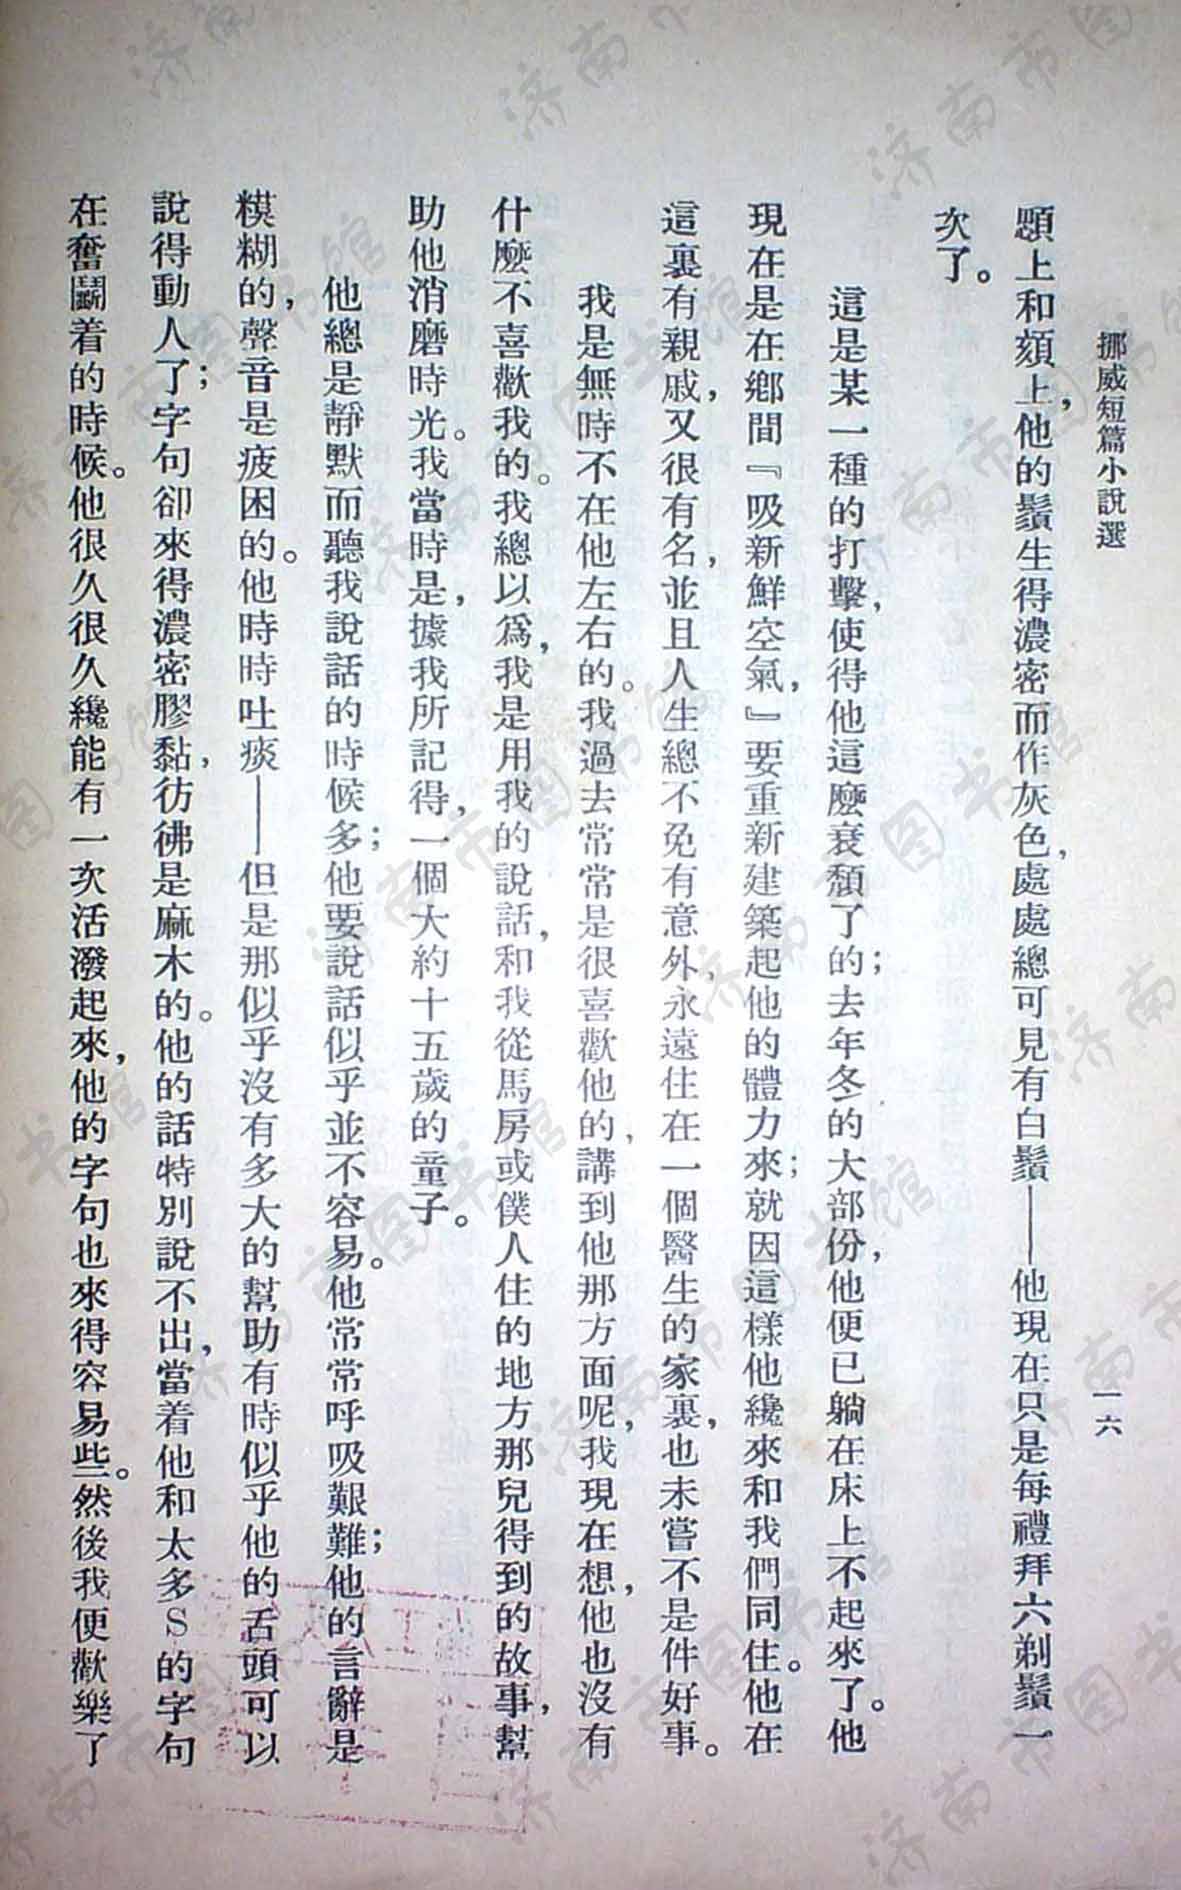 挪威短篇小說選
一六
顋上和頷上，他的鬚生得濃密而作灰色，處處總可見有白鬚——他現在只是每禮拜六剃鬚一
次了。
這是某一種的打擊，使得他這麼衰頹了的；去年冬的大部份，他便已躺在床上不起來了。他
現在是在鄉間『吸新鮮空氣，』要重新建築起他的體力來；就因這樣他纔來和我們同住。他在
這裏有親戚，又很有名，並且人生總不免有意外，永遠住在一個醫生的家裏，也未嘗不是件好事。
我是無時不在他左右的。我過去常常是很喜歡他的，講到他那方面呢，我現在想，他也沒有
什麼不喜歡我的。我總以爲，我是用我的說話，和我從馬房或僕人住的地方那兒得到的故事，幫
助他消磨時光。我當時是，據我所記得，一個大約十五歲的童子。
他總是靜默而聽我說話的時候多；他要說話似乎並不容易。他常常呼吸艱難；他的言辭是
糢糊的，聲音是疲困的。他時時吐痰——但是那似乎沒有多大的幫助有時似乎他的舌頭可以
說得動人了；字句卻來得濃密膠黏，彷彿是麻木的。他的話特別說不出，當着他和太多S的字句
在奮鬭着的時候。他很久很久纔能有一次活潑起來，他的字句也來得容易些。然後我便歡樂了